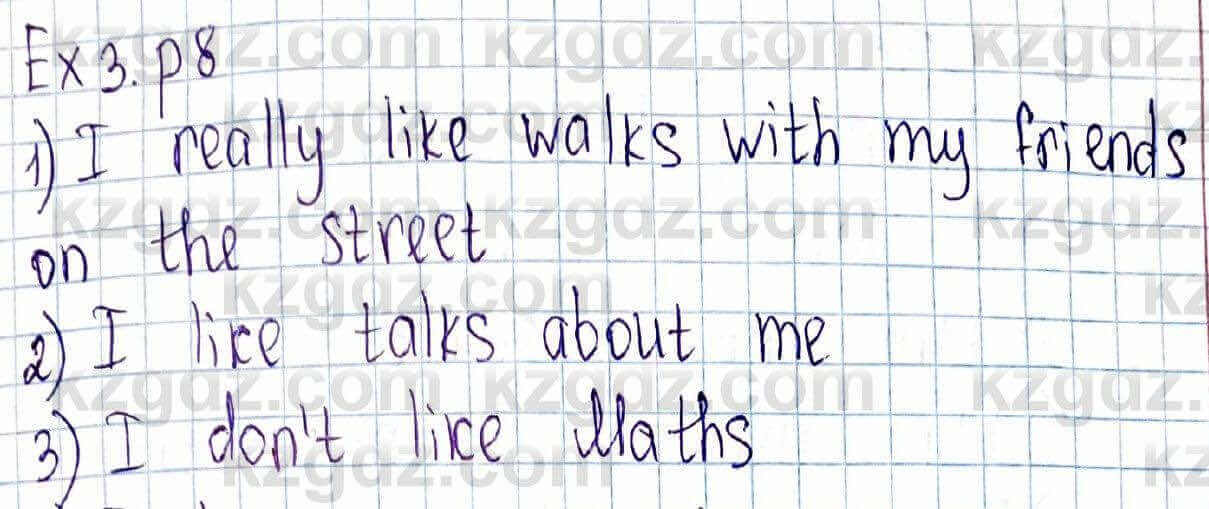 Ex 3. p8
1) I really like walks with my friends
on the street
2) I like talks about me
3) I don't like Maths